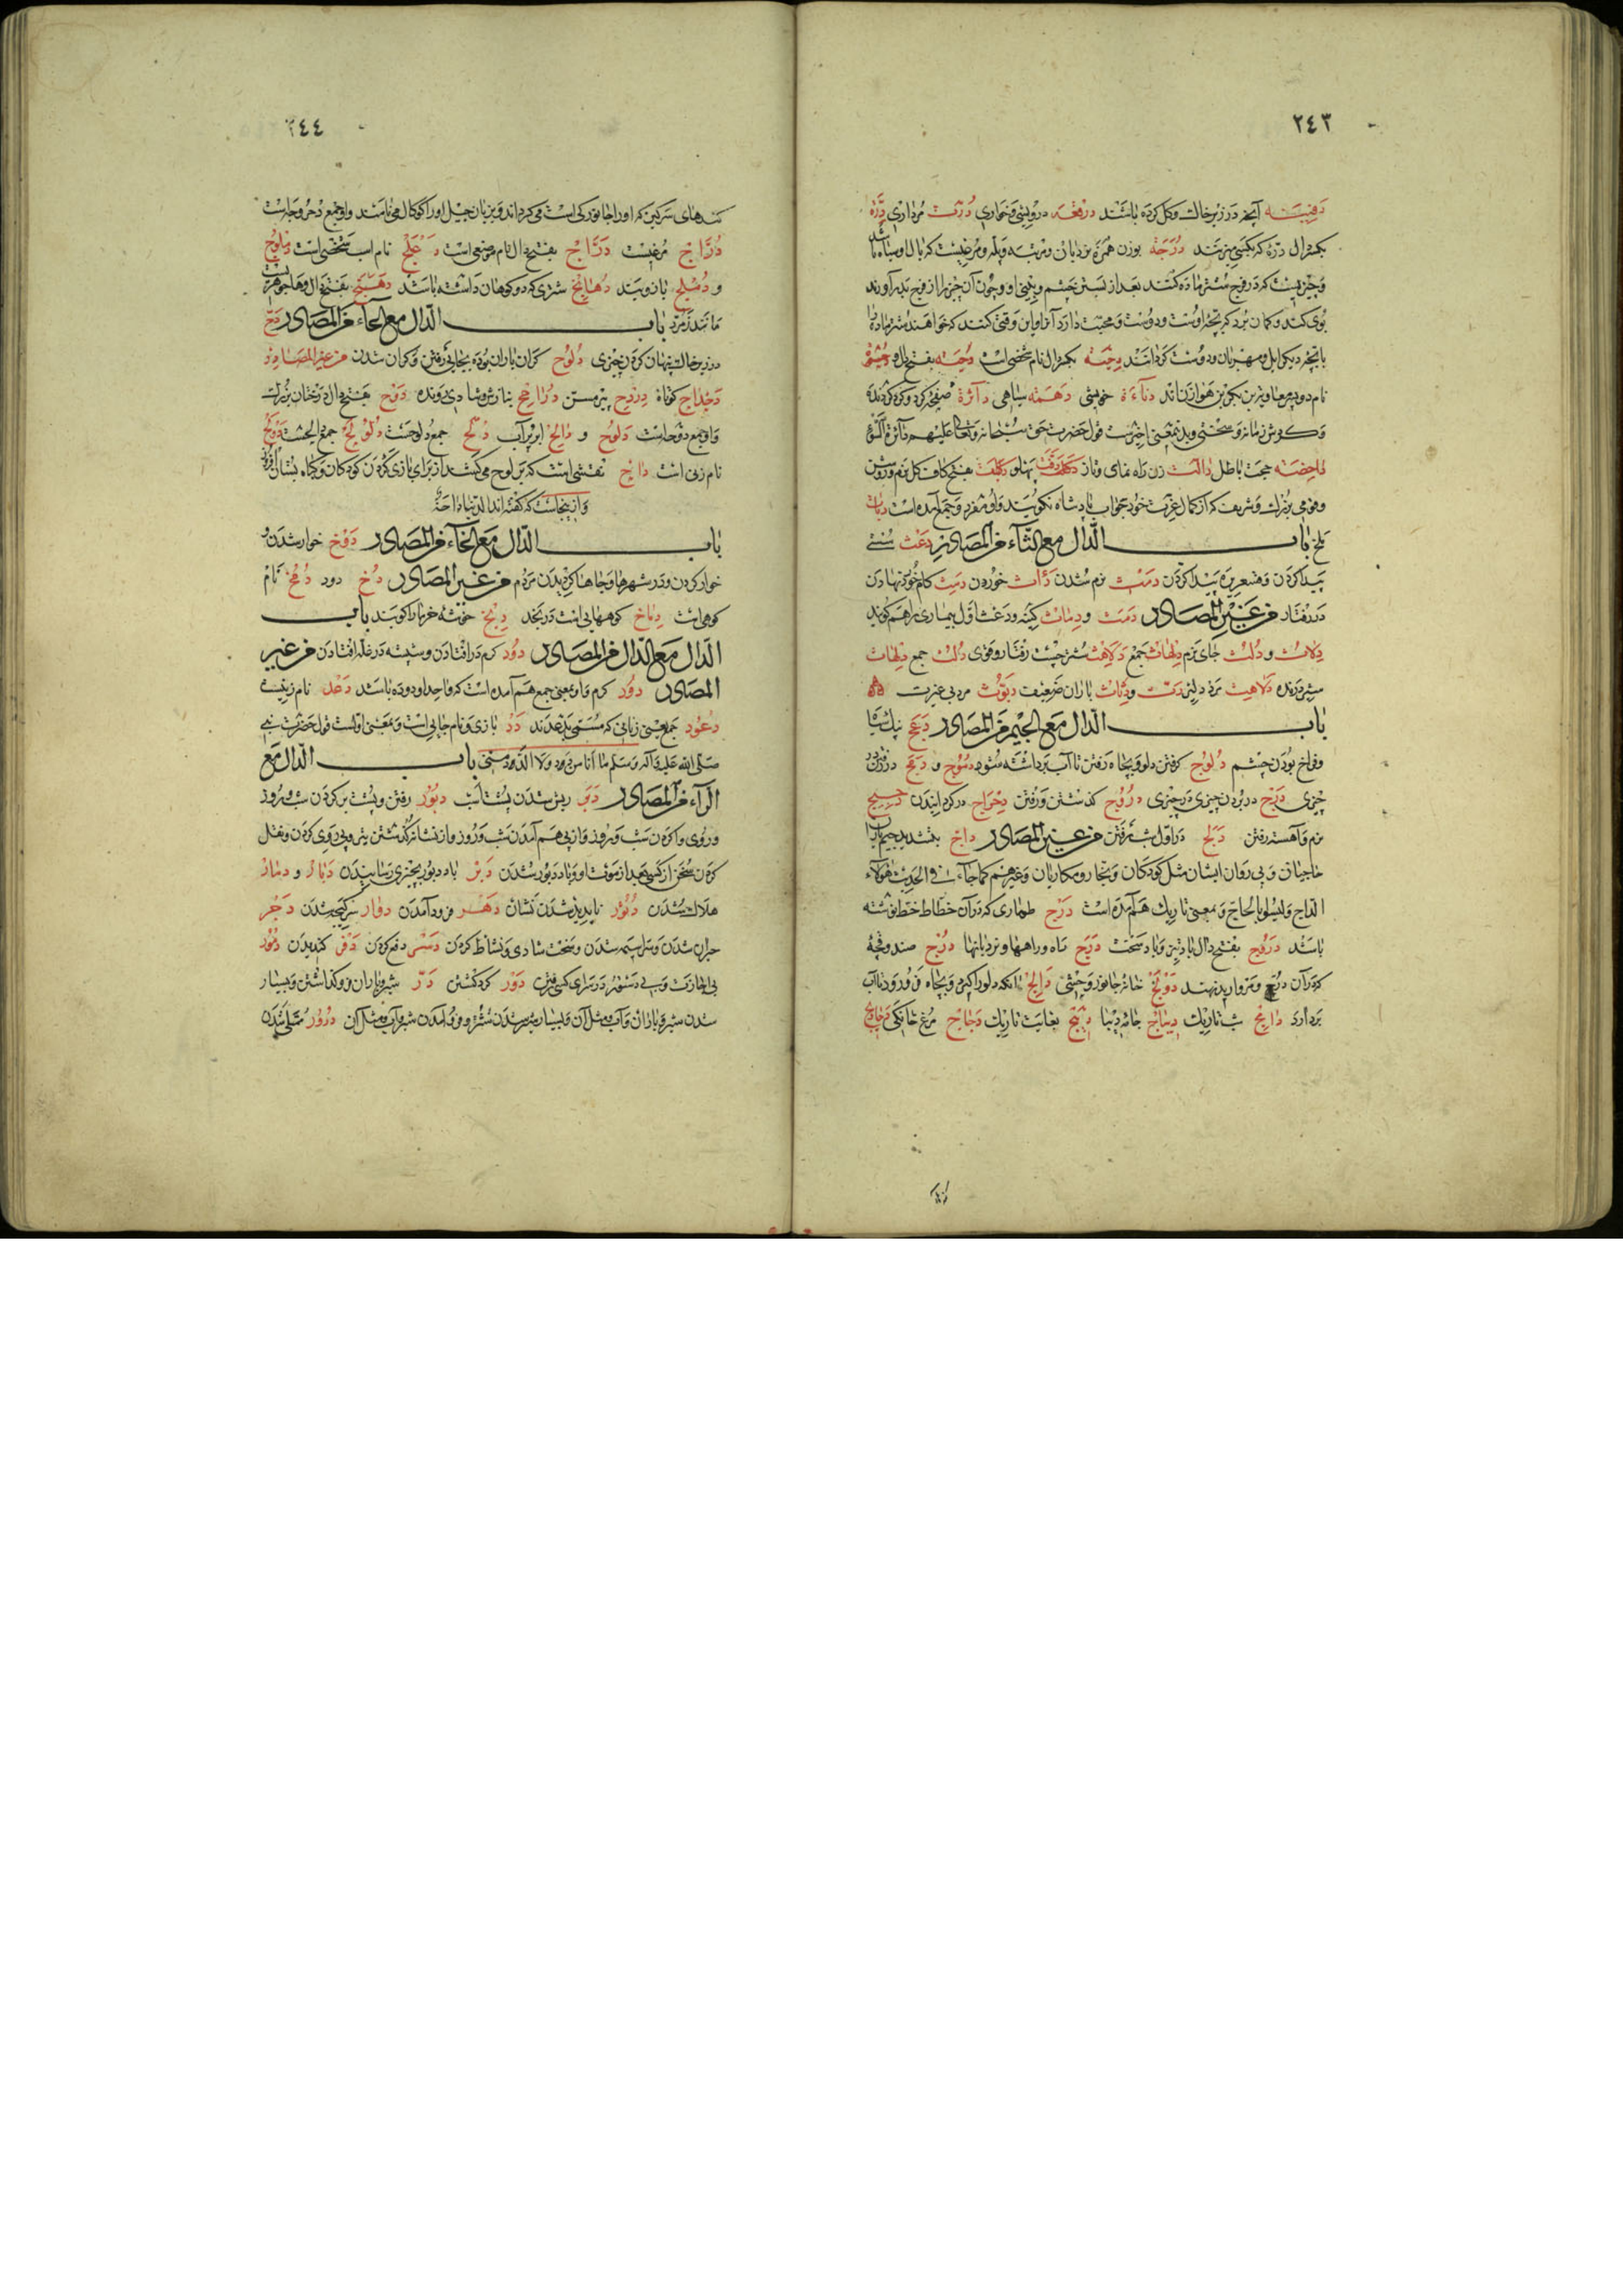 ٢٤٣
دفینه آنچه در زیر خاک و کل کرده باشند درقعه درویشی و خواری
بکسر دال درّه که بکسی میزنند دُرَجَة بوزن همزه نردبان و مرتبه و پله و مرغیست که بال او سیاه باشد
و چیزیست که در فرج شتر ماده کنند بعد از بستن چشم و بینی او و چون آن چیز را از فرج بدر آورند
بوی کند و کمان برد که بچه اوست و دوست و محبت دارد آنرا و این وقتی کنند که خواهند شتر ماده را
با بچه دیکر اهل و مهربان و دوست کردانند دِحْیَة بکسر دال نام شخصی است دُجیَة بفتح دال و
نام دو پسر معاویة بن بکر بن هوازن‌اند دناءة خویشی دهمة سیاهی دائرة
و کردش زمانه و سختی و بدین معنی اخیرست قول حضرت حق سبحانه و تعالی علیهم دائرة السّوء
داحضة حجت باطل دالّت زن راه نمای و ناز دکة
و قومی بزرك و شریف که از کمال عزت خود جواب پادشاه نکویند و او مفرد و جمع آمده است
تلخ باب الدّال مع الثّاء من المصادر دعث
پیدا کردن و قشعریره پیدا کردن دمث نرم شدن دَأث خوردن
در رفتار من غیر المصادر دمث و دِماث کینه و دعث اوّل بیماری را هم کویند
دِلاث و دُلُث جای نرم دِلْهاث جمع دَلاهث شتر چست رفتار و قوی دُلُث جمع دلهاث
شیر درنده دَلاهث مرد دلیر دثّ و دِثاث باران ضعیف دیّوث مرد بی غیرت
باب الدّال مع الجیم من المصادر دعج نیك سیاه
و فراخ بودن چشم دُلوج کرفتن دلو و بچاه رفتن تا آب برداشته شود دموج و دمج در رفتن در
چیزی درج در بردن چیزی در چیزی دُروج کذشتن و رفتن دِحراج در کردانیدن
نرم و آهسته رفتن دَلج در اوّل شب رفتن من غیر المصادر داجّ بتشدید جیم یاران
حاجیان و پی روان ایشان مثل کودکان و تجار و مکاریان و غیرهم کما جاء فی الحدیث هؤلاء
الداج و لیسوا بالحاج و بمعنی تاریك هم آمده است دَرْج طوماری که در آن خطاط خط نوشته
باشد دَروج بفتح دال باد تیز و باد سخت دَرَج راه و راهها و نردبانها دُرْج صندوقچهٔ
که در آن درّ و مروارید نهند دَوْلَج خانهٔ جانور وحشی دالج انکه دلو را کیرد و بچاه فرود رود تا آب
بردارد داج شب تاریك دیباج جامه دیبا دیجوج بغایت تاریك دجاج مرغ خانکی
٢٤٤
کندهای سرکین که او را جانورکی است می کرداند و بزبان جیل او را کوکال می نامند و او جمع دحروجه است
دُرّاج مرغیست دَرّاج بفتح دال نام موضعی است دعلج نام اسب شخصی است دملوج
و دُملج بازوبند دُهانج شتری که دو کوهان داشته باشد دهنج بفتح دال و ها جوهریست
مانند زمرّد باب الدّال مع الحاء من المصادر دحّ
در زیر خاك پنهان کردن چیزی دُلوح کران باران بوده بجایی رفتن و کران شدن من غیر المصادر
دحداح کوتاه دِردِح پیر مسن دوح بفتح دال درختان بزرك
و او جمع دوحه است دَلوح و دالح ابر پر آب دُلّح جمع دلوحست
نام زنی است داح نقشی است که بر لوح میکشند از برای بازی کردن کودکان و کیاه بستان
و از اینجاست که گفته‌اند الدنیا داحةٌ
باب الدّال مع الخاء من المصادر دوخ خوار شدن و
خوار کردن و در شهرها و جاها کردیدن مردم من غیر المصادر دخ دود دمخ نام
کوهی است دِماخ کوههایی است در نجد دیخ خوشه خرما را کویند باب
الدّال مع الدّال من المصادر دود کرم در افتادن و شپشه در غلّه افتادن من غیر
المصادر دود کرم و او بمعنی جمع هم آمده است که واحد او دوده باشد دعد نام زنیست
دُعود جمع یعنی زنانی که مسمّی بدعدند دَدْ بازی و نام جایی است و بمعنی اوّلست قول حضرت نبی
صلّی الله علیه و آله و سلم ما أنا من دد و لا الدّد منّی باب الدّال مع
الرّاء من المصادر دَبَر ریش شدن پشت اسب دبور رفتن و پشت بر کردن شب و روز
و روی وا کردن شب و روز و از پی هم آمدن شب و روز و از نشانه کذشتن تیر و پی روی کردن و نقل
کردن سخن از کسی بعد از موت او و با باد دبور شدن دَبْر باد دبور بچیزی رسانیدن دَبار و دمار
هلاك شدن دُثور ناپدید شدن نشان دهر فرود آمدن دوار سرکیجه شدن دَجَر
حیران شدن و سراسیمه شدن و سخت شادی و نشاط کردن دَسْر دفع کردن دَفَر کندیدن دمور
بی اجازت و بی دستور در سرای کسی رفتن دَوْر کرد کشتن دَرّ شیر و باران فرو کذاشتن و بسیار
شدن شیر و باران و آب و مثل آن و بسیار شیر شدن شتر و فرود آمدن شیر و آب و مثل آن دُرور